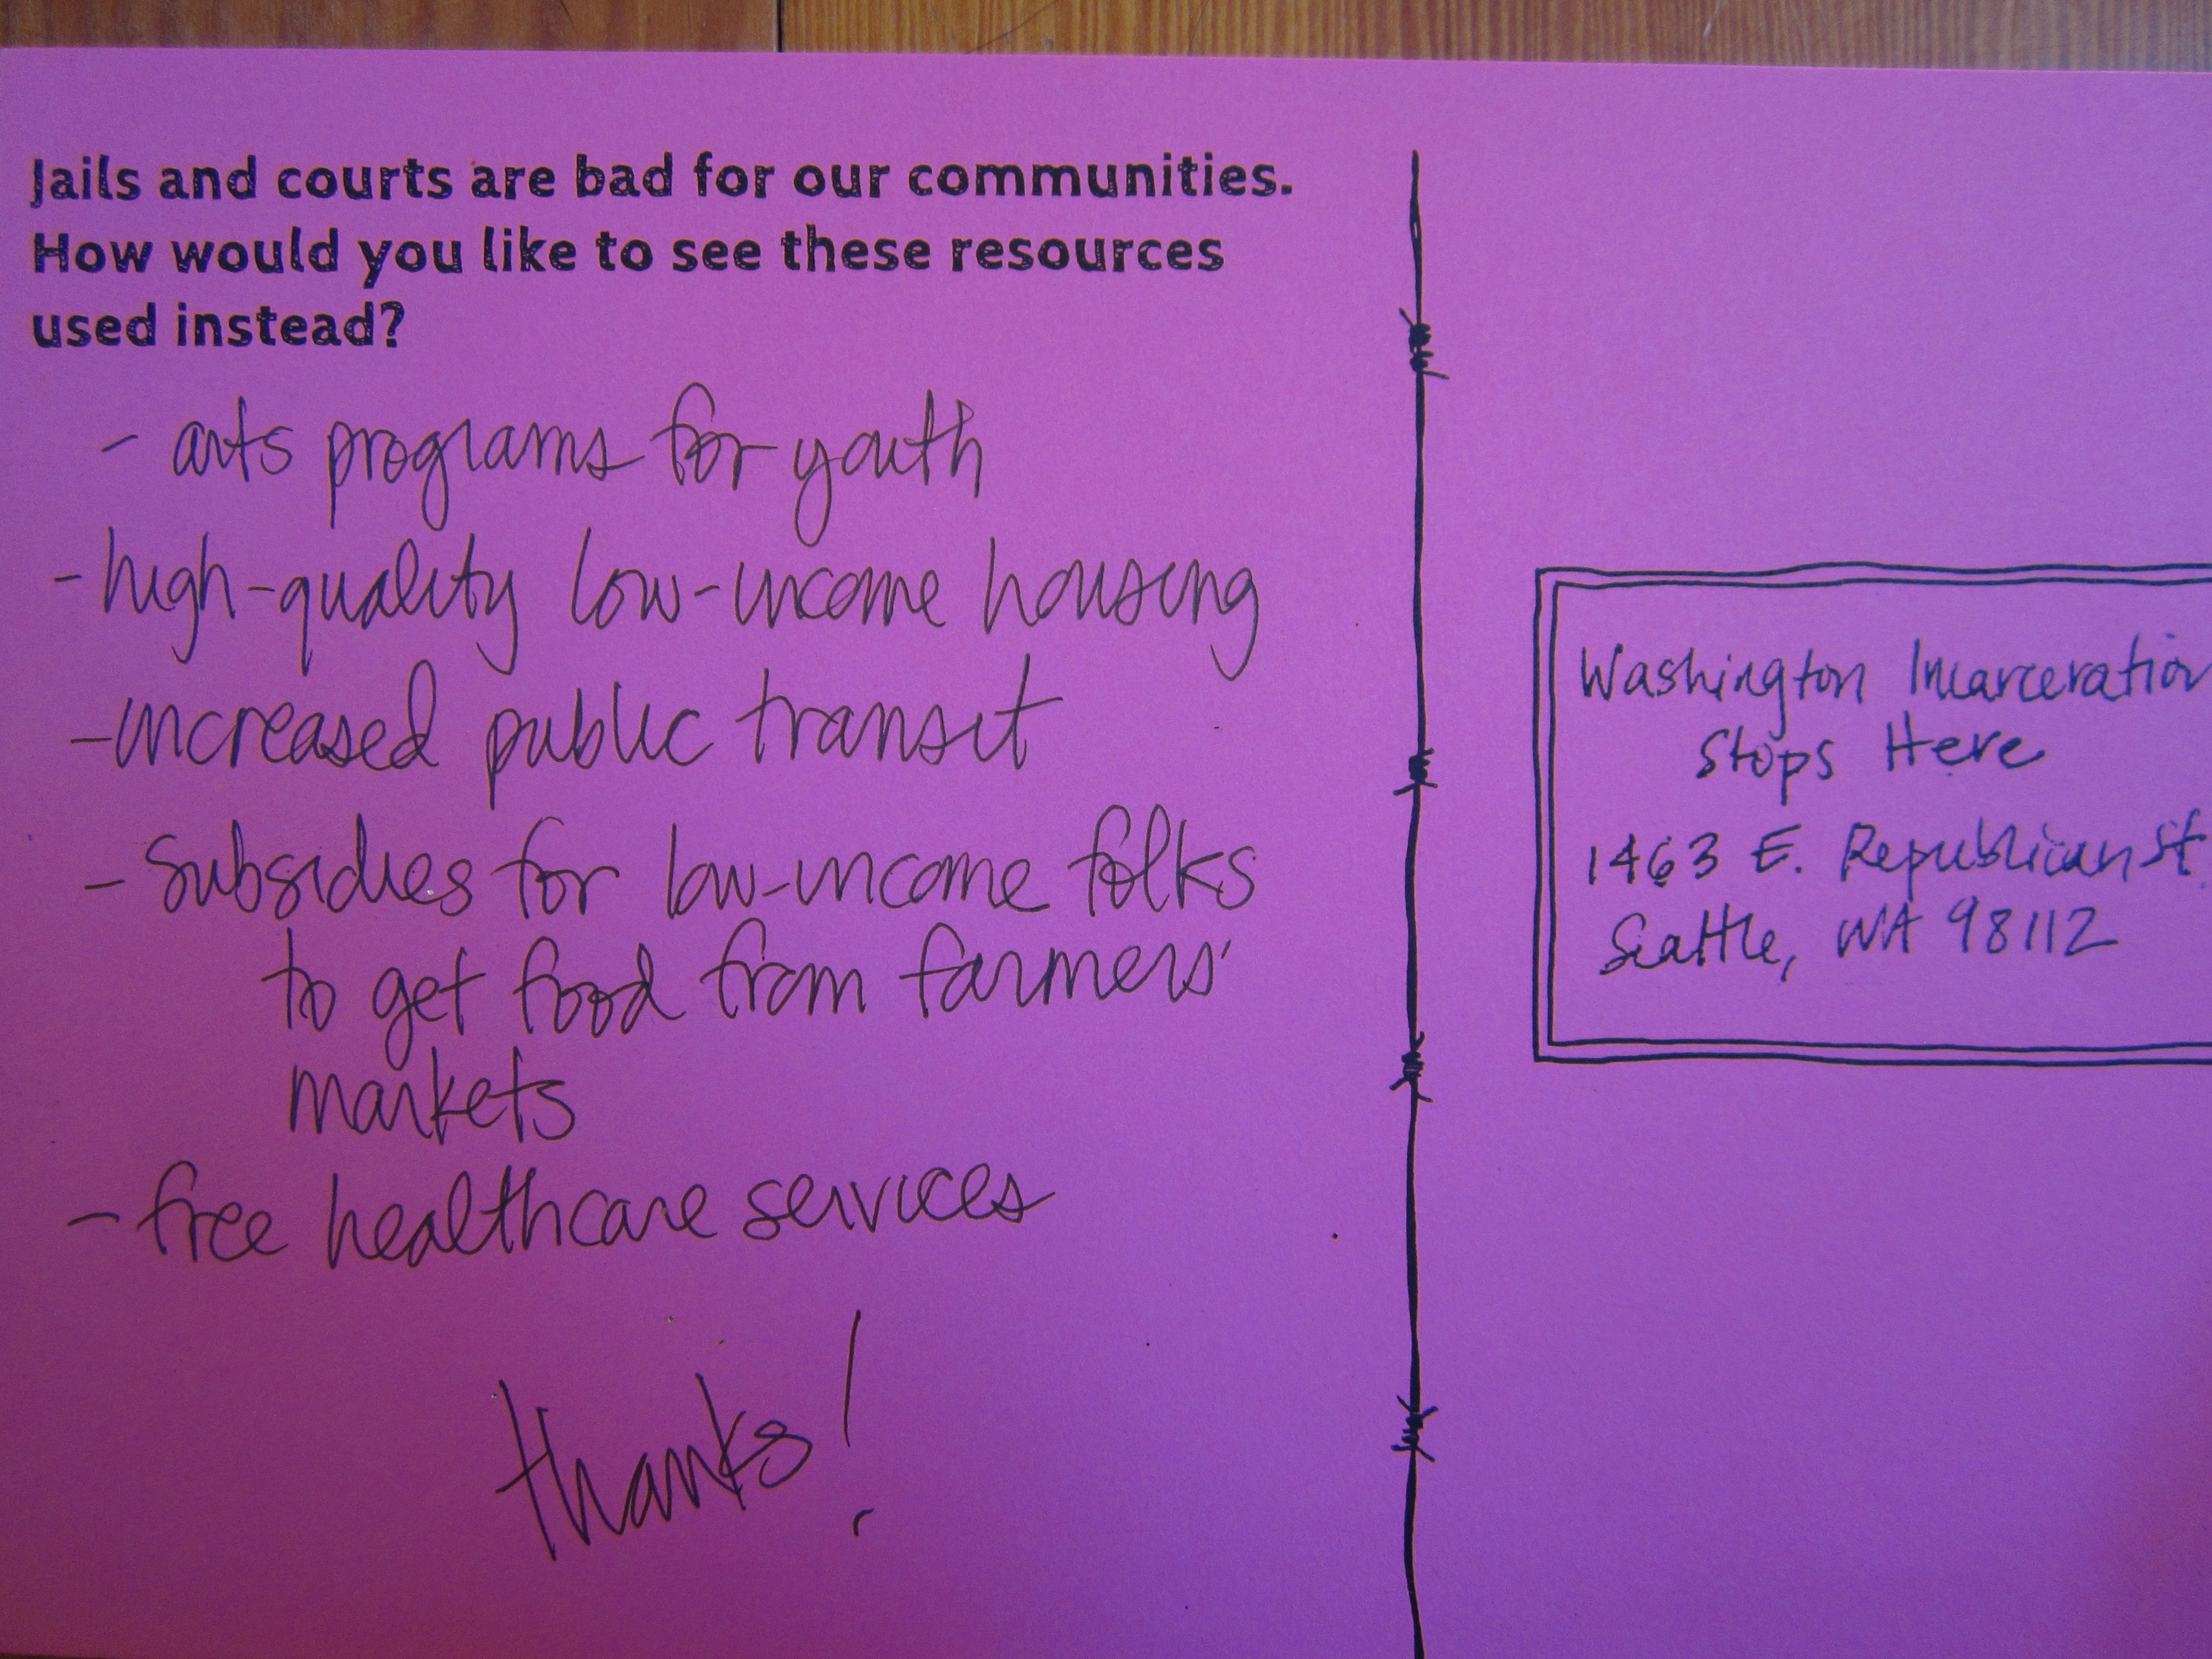 Jails and courts are bad for our communities.
How would you like to see these resources
used instead?
- arts programs for youth
- high-quality low-income housing
- increased public transit
- subsidies for low-income folks
to get food from farmers'
markets
- free healthcare services
thanks!
Washington Incarceration
Stops Here
1463 E. Republican St.
Seattle, WA 98112